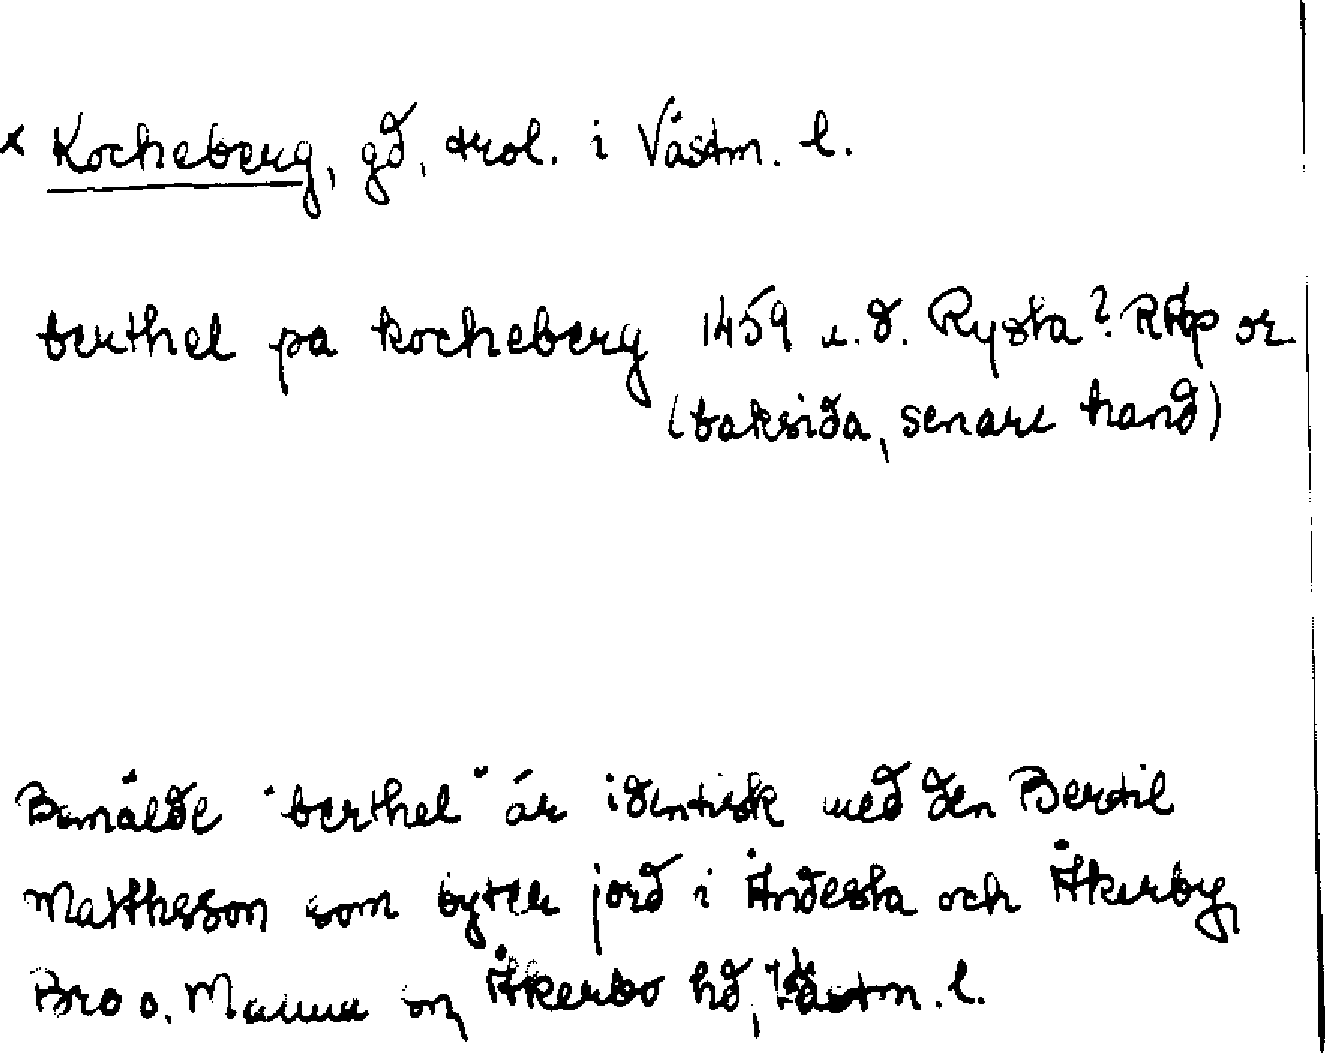 x Kocheberg, gd, trol. i Västm. l.
berthel pa kocheberg 1459 u. d. Rysta? RAp or
(baksida, senare hand)
Bemälde "berthel" är identisk med den Bertil
Mattsson som byter jord i Åndesta och Åkerby,
Bro o. Malma snr, Åkerbo hd, Västm. l.